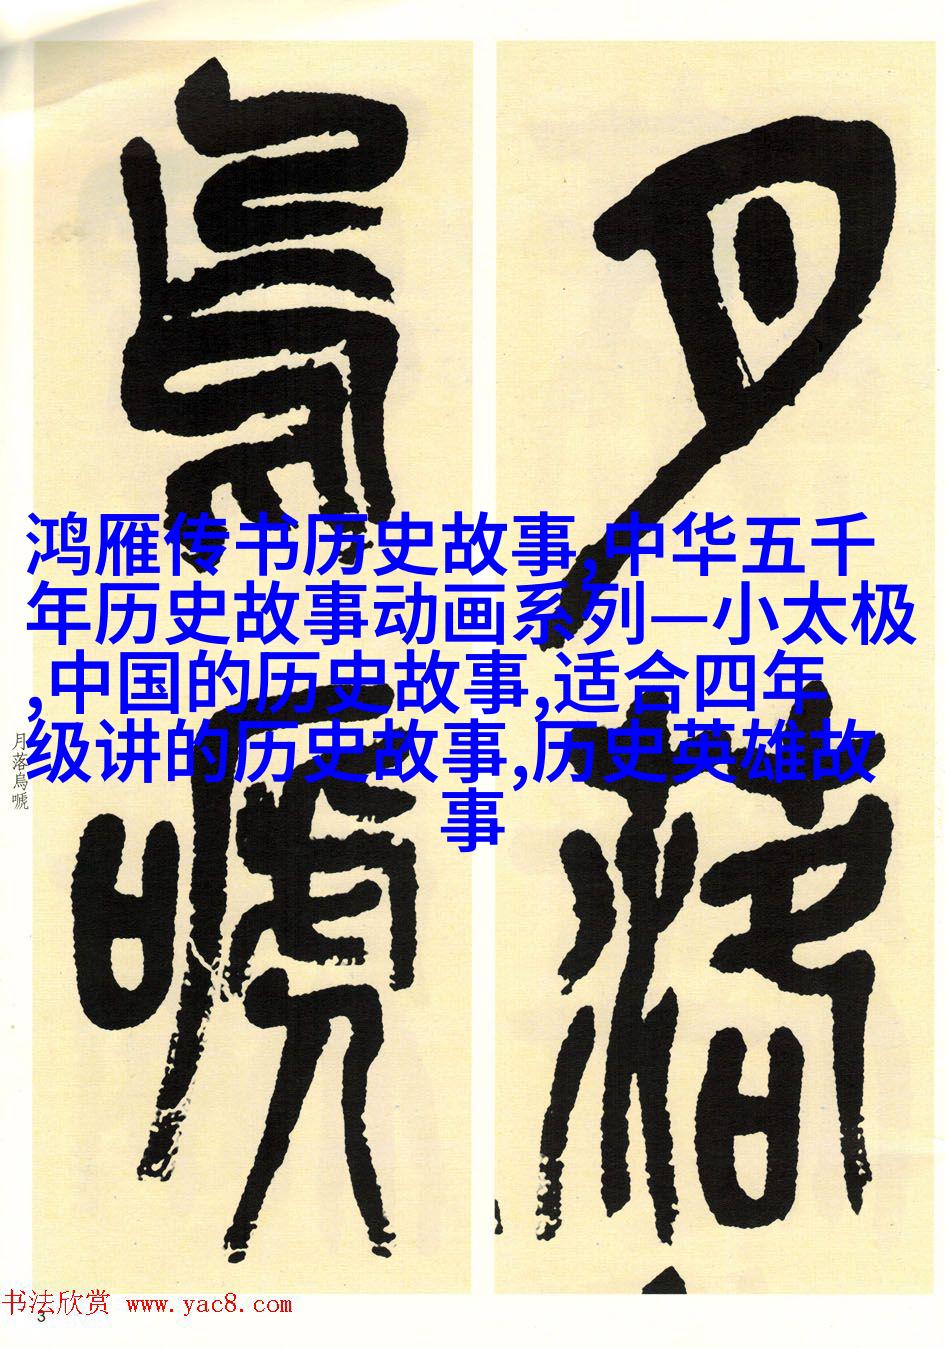 月落
烏嗁
鸿雁传书历史故事,中华五千
年历史故事动画系列—小太极
,中国的历史故事,适合四年
级讲的历史故事,历史英雄故
事
月落烏嗁
书法欣赏 www.yac8.com
3